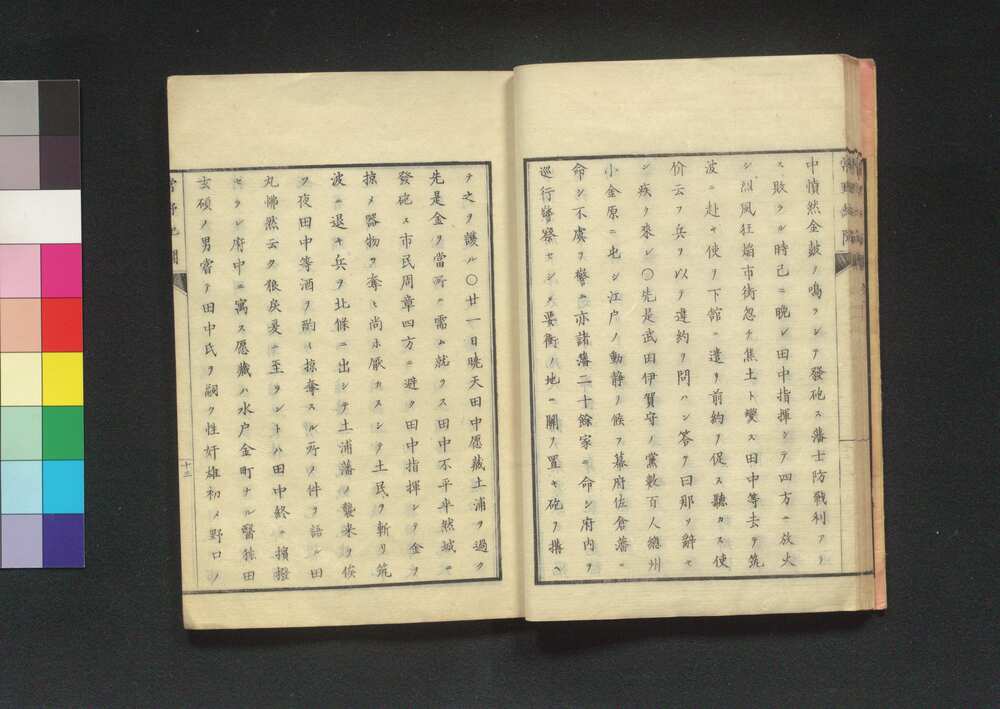 中憤然金皷ヲ鳴ラシテ發砲ス藩士防戰利アラ
ス敗ラル時已ニ晩シ田中指揮シテ四方ニ放火
シ烈風狂焔市街忽チ焦土ト變ス田中等去テ筑
波ニ赴キ使ヲ下館ニ遣リ前約ヲ促ス聽カス使
价云フ兵ヲ以テ違約ヲ問ハン答ヲ曰那ソ辭セ
シ疾ク來レ〇先是武田伊賀守ノ黨數百人總州
小金原ニ屯シ江戸ノ動静ヲ候フ幕府佐倉藩ニ
命シ不虞ヲ警ム亦諸藩二十餘家ニ命シ府内ヲ
巡行警察セシメ要衝ノ地ニ關ヲ置キ砲ヲ携ヘ
テ之ヲ護ル〇廿一日曉天田中愿藏土浦ヲ過ク
先是金ヲ當所ニ需ム就クス田中不平卒然城ニ
發砲ス市民周章四方ニ避ク田中指揮シテ金ヲ
掠メ器物ヲ奪ヒ尚ホ厭カスシテ土民ヲ斬リ筑
波ニ退キ兵ヲ北條ニ出シテ土浦藩ノ襲来ヲ俟
ツ夜田中等酒ヲ酌ィ掠奪スル所ノ件ヲ語ル田
丸怫然云ク狼戻爰ニ至ラントハ田中終ニ擯撥
セラレ府中ニ寓ス愿藏ハ水户金町ナル醫猿田
玄碩ノ男甞テ田中氏ヲ嗣ク性奸雄初メ野口ノ
十三